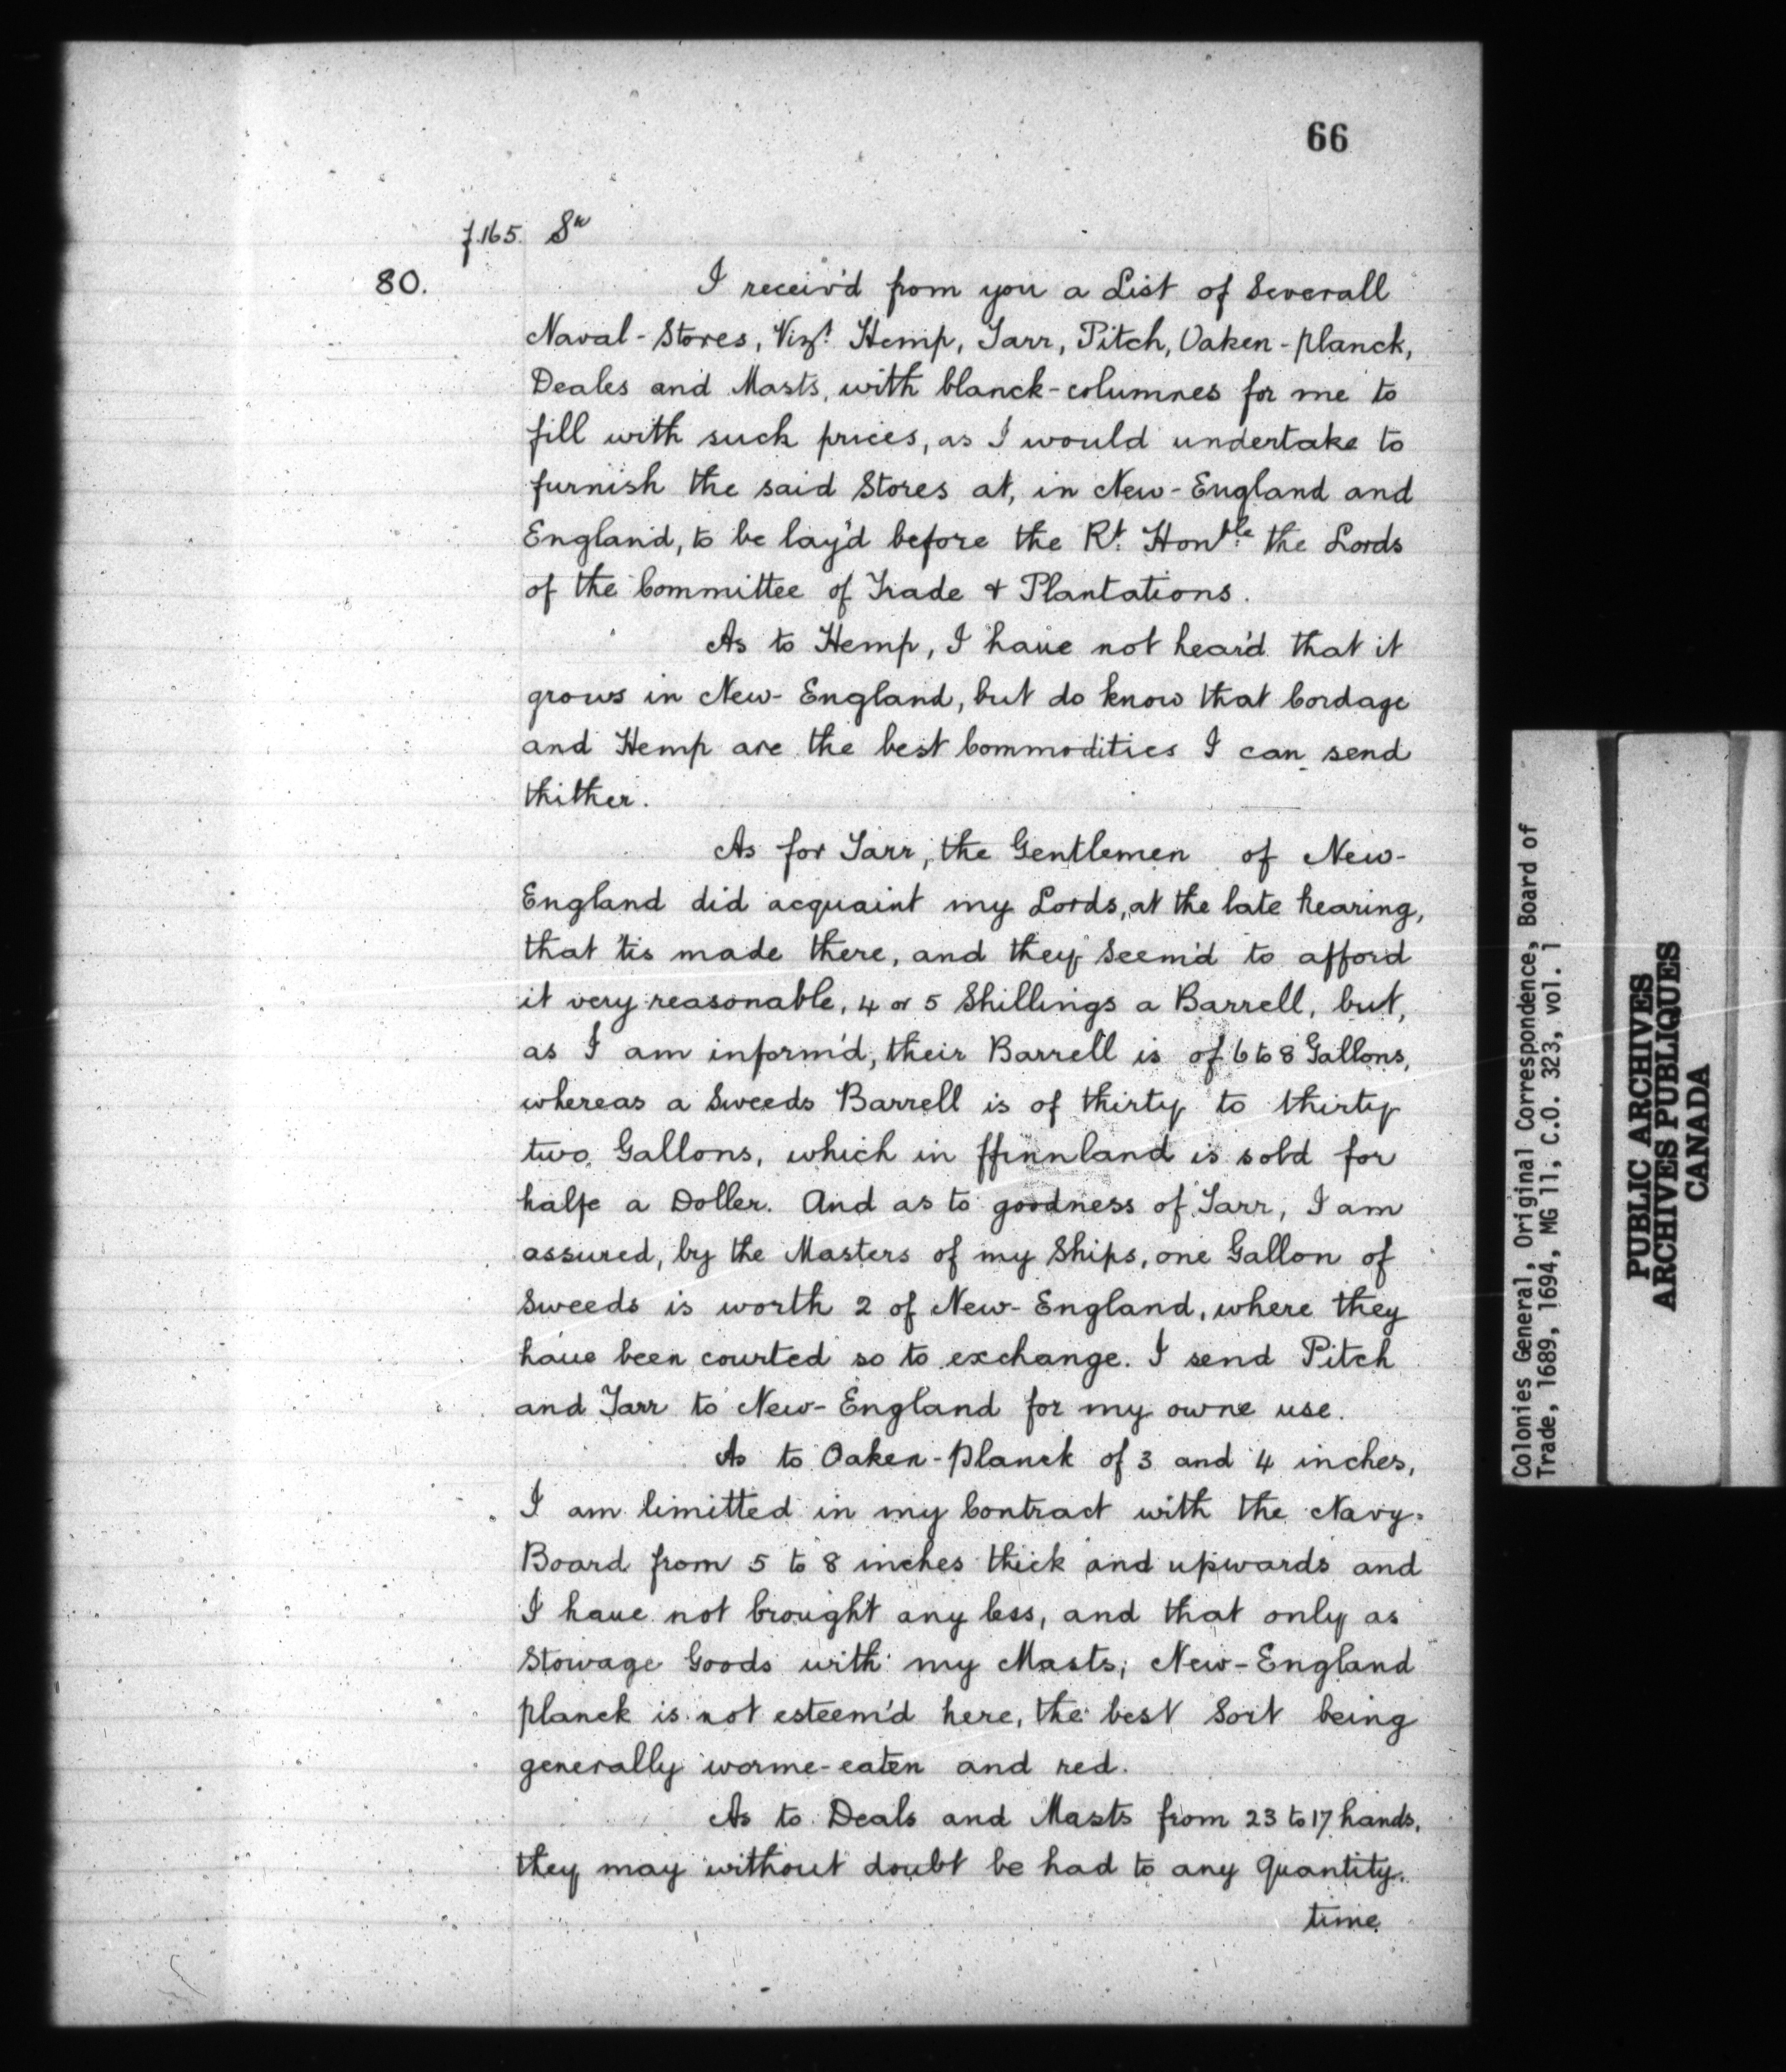 66
f.165. Sr
80.
I receiv'd from you a List of Severall
Naval-Stores, Vizt. Hemp, Tarr, Pitch, Oaken-planck,
Deales and Masts, with blanck-columnes for me to
fill with such prices, as I would undertake to
furnish the said Stores at, in New-England and
England, to be lay'd before the Rt. Honble the Lords
of the Committee of Trade & Plantations.
As to Hemp, I haue not hear'd that it
grows in New-England, but do know that Cordage
and Hemp are the best Commodities I can send
thither.
As for Tarr, the Gentlemen of New-
England did acquaint my Lords, at the late hearing,
that 'tis made there, and they Seem'd to afford
it very reasonable, 4 or 5 Shillings a Barrell, but,
as I am inform'd, their Barrell is of 6 to 8 Gallons,
whereas a Sweeds Barrell is of thirty to thirty
two Gallons, which in ffinnland is sold for
halfe a Doller. And as to goodness of Tarr, I am
assured, by the Masters of my Ships, one Gallon of
Sweeds is worth 2 of New-England, where they
haue been courted so to exchange. I send Pitch
and Tarr to New-England for my owne use.
As to Oaken-planck of 3 and 4 inches,
I am limitted in my Contract with the Navy-
Board from 5 to 8 inches thick and upwards and
I haue not brought any less, and that only as
Stowage Goods with my Masts; New-England
planck is not esteem'd here, the best Sort being
generally worme-eaten and red.
As to Deals and Masts from 23 to 17 hands,
they may without doubt be had to any Quantity.
time
Colonies General, Original Correspondence, Board of
Trade, 1689, 1694, MG 11, C.O. 323, vol. 1
PUBLIC ARCHIVES
ARCHIVES PUBLIQUES
CANADA